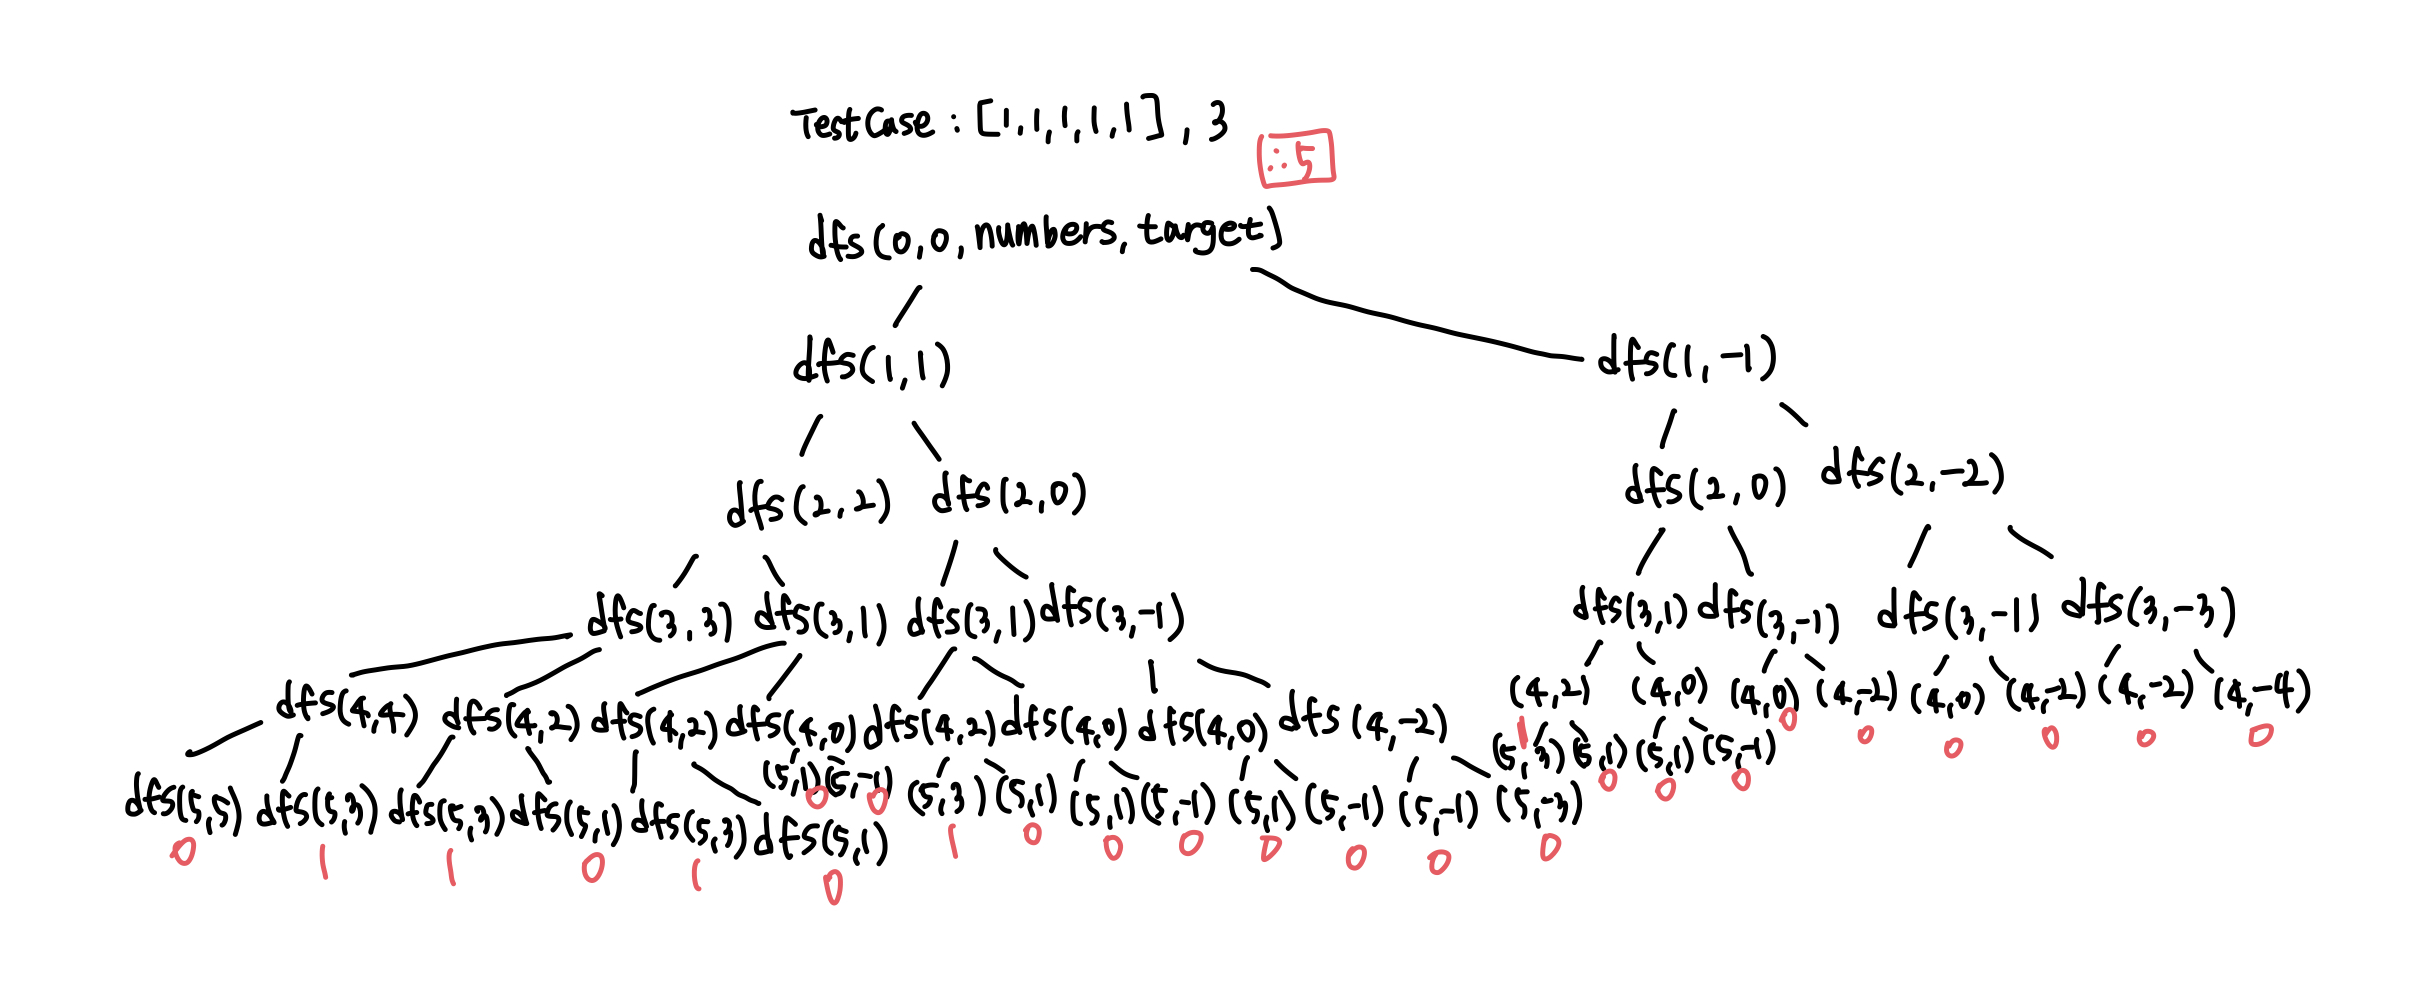 TestCase : [1,1,1,1,1], 3
∴5
dfs(0,0,numbers,target)
dfs(1,1) dfs(1,-1)
dfs(2,2) dfs(2,0) dfs(2,0) dfs(2,-2)
dfs(3,3) dfs(3,1) dfs(3,1) dfs(3,-1) dfs(3,1) dfs(3,-1) dfs(3,-1) dfs(3,-3)
dfs(4,4) dfs(4,2) dfs(4,2) dfs(4,0) dfs(4,2) dfs(4,0) dfs(4,0) dfs(4,-2) (4,2) (4,0) (4,0) (4,-2) (4,0) (4,-2) (4,-2) (4,-4)
0 0 0 0 0 0
dfs(5,5) dfs(5,3) dfs(5,3) dfs(5,1) dfs(5,3) dfs(5,1) (5,1) (5,-1) (5,3) (5,1) (5,1) (5,-1) (5,1) (5,-1) (5,-1) (5,-3) (5,3) (5,1) (5,1) (5,-1)
0 1 1 0 1 0 0 0 1 0 0 0 0 0 0 0 1 0 0 0